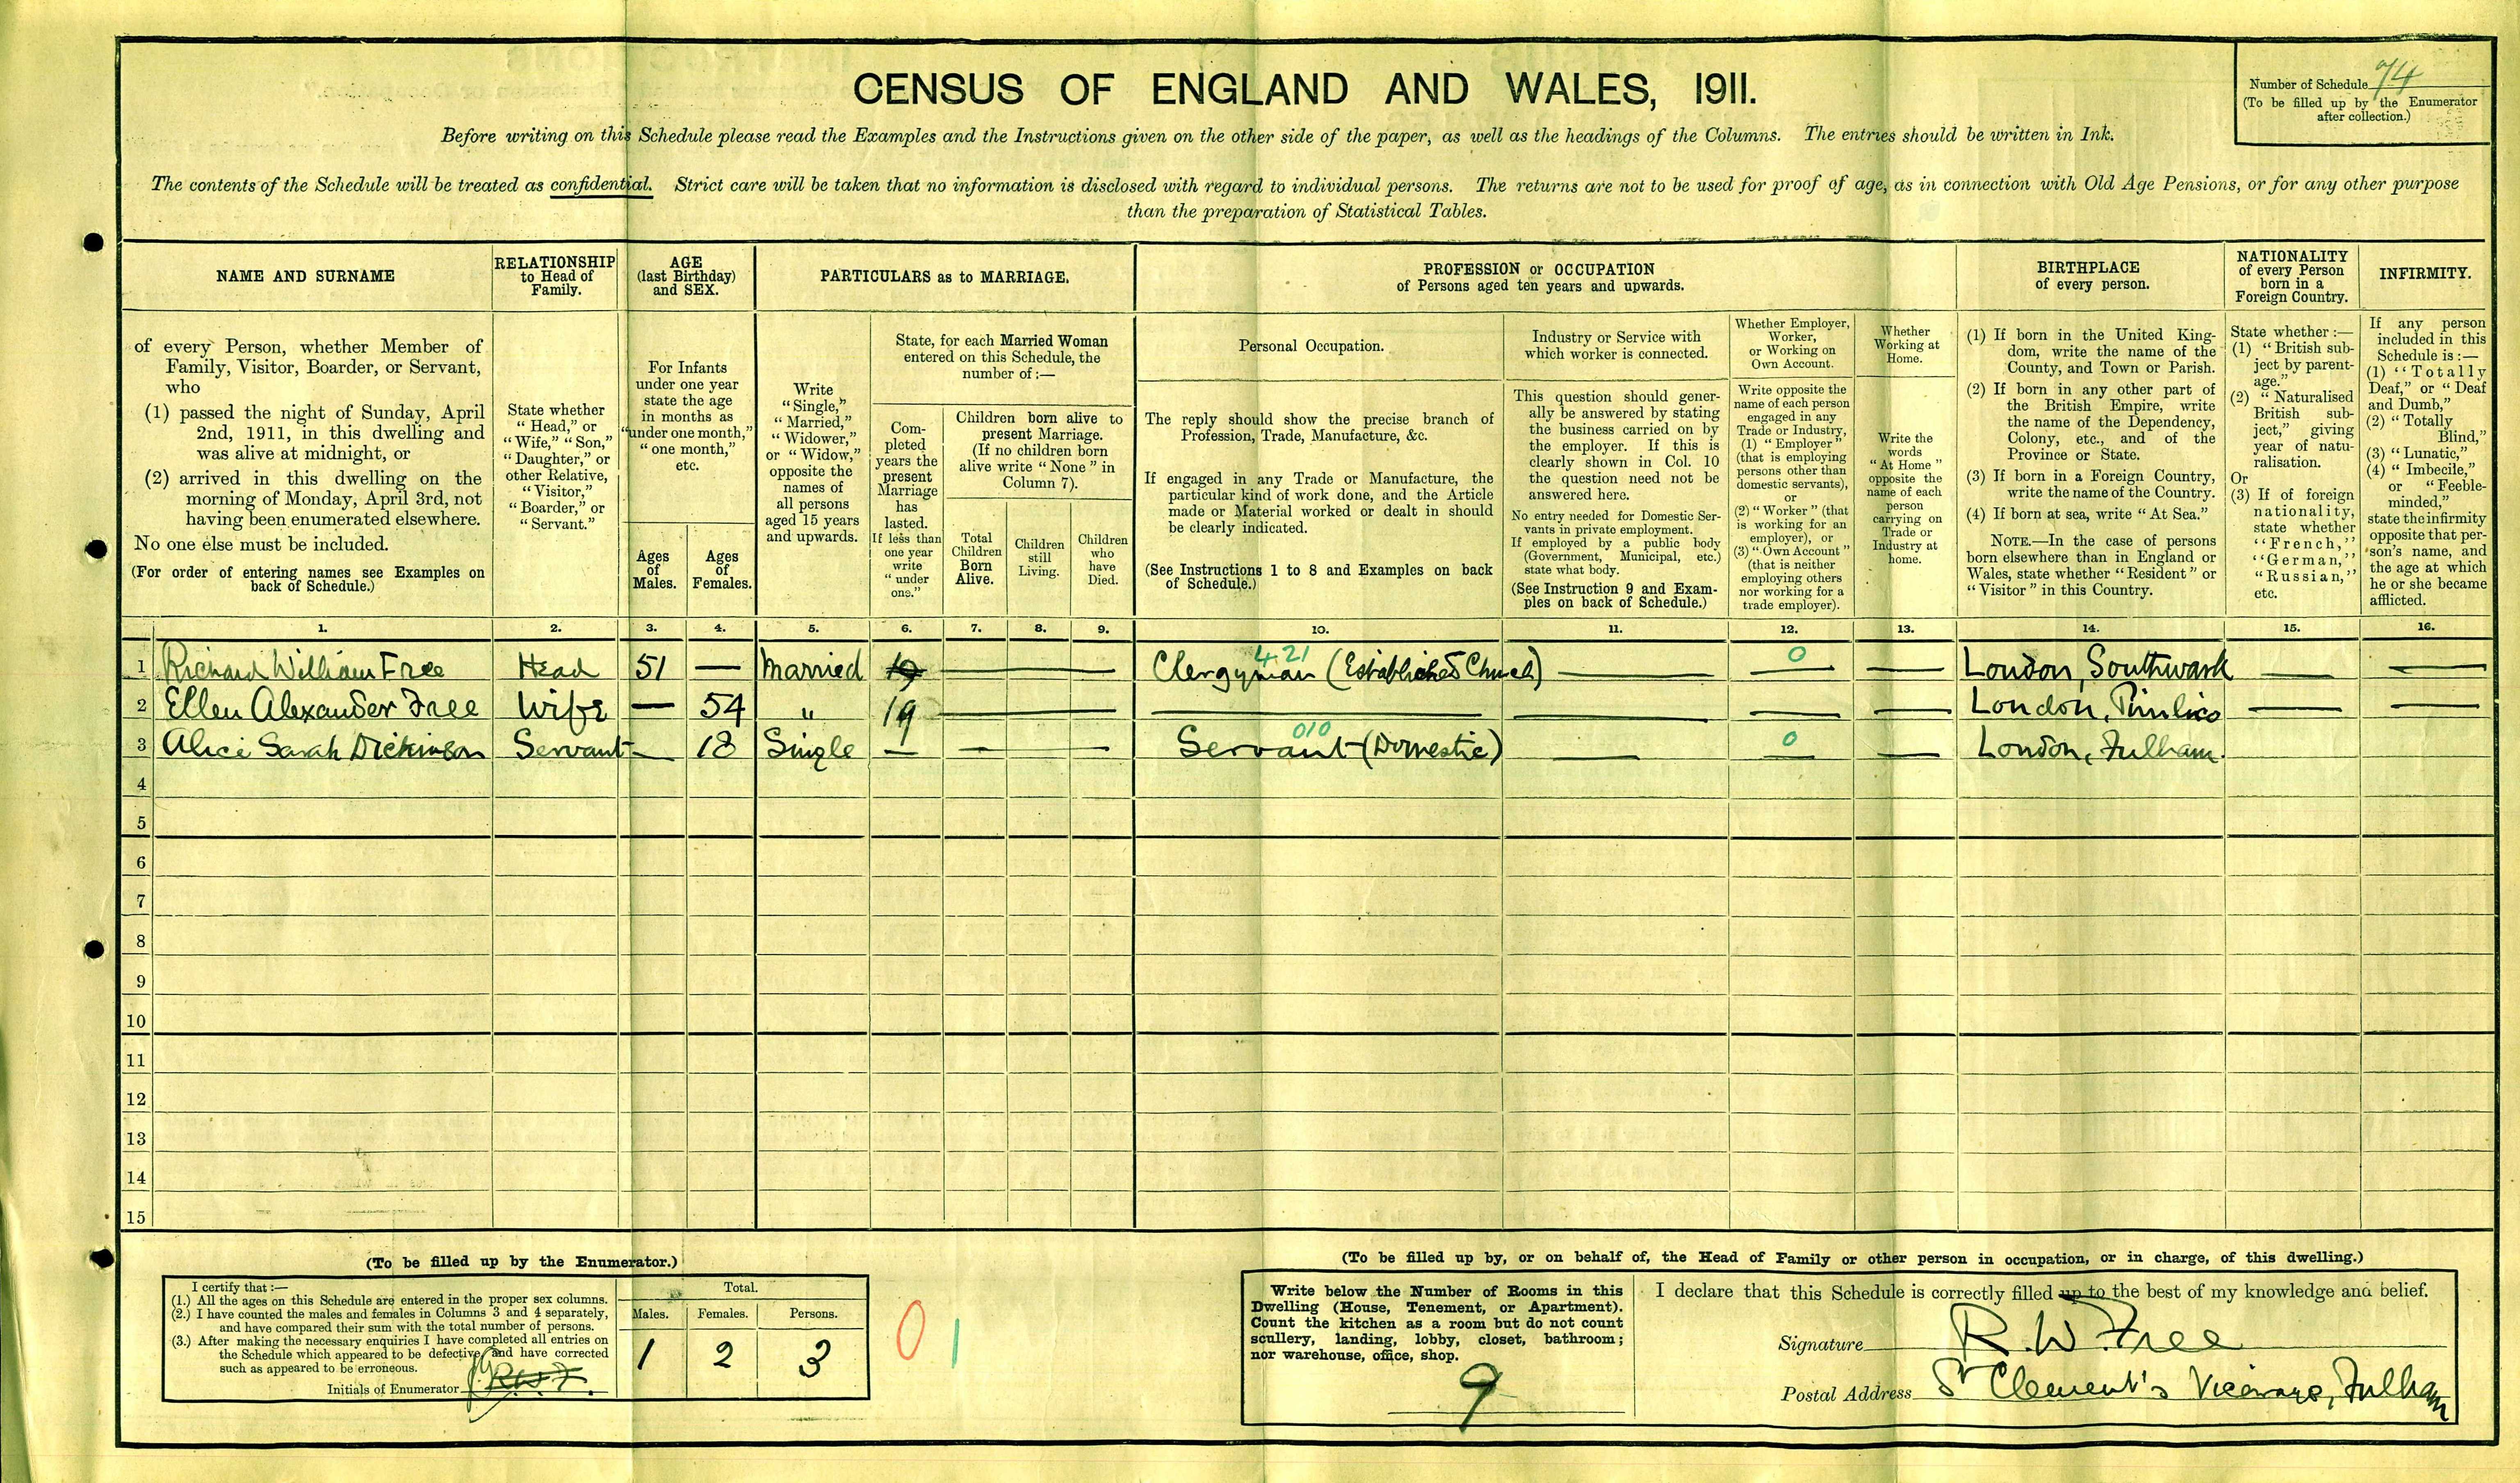 CENSUS OF ENGLAND AND WALES, 1911.
Number of Schedule 74
(To be filled up by the Enumerator
after collection.)
Before writing on this Schedule please read the Examples and the Instructions given on the other side of the paper, as well as the headings of the Columns. The entries should be written in Ink.
The contents of the Schedule will be treated as confidential. Strict care will be taken that no information is disclosed with regard to individual persons. The returns are not to be used for proof of age, as in connection with Old Age Pensions, or for any other purpose
than the preparation of Statistical Tables.
NAME AND SURNAME
of every Person, whether Member of
Family, Visitor, Boarder, or Servant,
who
(1) passed the night of Sunday, April
2nd, 1911, in this dwelling and
was alive at midnight, or
(2) arrived in this dwelling on the
morning of Monday, April 3rd, not
having been enumerated elsewhere.
No one else must be included.
(For order of entering names see Examples on
back of Schedule.)
RELATIONSHIP
to Head of
Family.
State whether
"Head," or
"Wife," "Son,"
"Daughter," or
other Relative,
"Visitor,"
"Boarder," or
"Servant."
AGE
(last Birthday)
and SEX.
For Infants
under one year
state the age
in months as
"under one month,"
"one month,"
etc.
Ages
of
Males.
Ages
of
Females.
PARTICULARS as to MARRIAGE.
Write
"Single,"
"Married,"
"Widower,"
or "Widow,"
opposite the
names of
all persons
aged 15 years
and upwards.
State, for each Married Woman
entered on this Schedule, the
number of:—
Com-
pleted
years the
present
Marriage
has
lasted.
If less than
one year
write
"under
one."
Children born alive to
present Marriage.
(If no children born
alive write "None" in
Column 7).
Total
Children
Born
Alive.
Children
still
Living.
Children
who
have
Died.
PROFESSION or OCCUPATION
of Persons aged ten years and upwards.
Personal Occupation.
The reply should show the precise branch of
Profession, Trade, Manufacture, &c.
If engaged in any Trade or Manufacture, the
particular kind of work done, and the Article
made or Material worked or dealt in should
be clearly indicated.
(See Instructions 1 to 8 and Examples on back
of Schedule.)
Industry or Service with
which worker is connected.
This question should gener-
ally be answered by stating
the business carried on by
the employer. If this is
clearly shown in Col. 10
the question need not be
answered here.
No entry needed for Domestic Ser-
vants in private employment.
If employed by a public body
(Government, Municipal, etc.)
state what body.
(See Instruction 9 and Exam-
ples on back of Schedule.)
Whether Employer,
Worker,
or Working on
Own Account.
Write opposite the
name of each person
engaged in any
Trade or Industry,
(1) "Employer"
(that is employing
persons other than
domestic servants),
or
(2) "Worker" (that
is working for an
employer), or
(3) "Own Account"
(that is neither
employing others
nor working for a
trade employer).
Whether
Working at
Home.
Write the
words
"At Home"
opposite the
name of each
person
carrying on
Trade or
Industry at
home.
BIRTHPLACE
of every person.
(1) If born in the United King-
dom, write the name of the
County, and Town or Parish.
(2) If born in any other part of
the British Empire, write
the name of the Dependency,
Colony, etc., and of the
Province or State.
(3) If born in a Foreign Country,
write the name of the Country.
(4) If born at sea, write "At Sea."
NOTE.—In the case of persons
born elsewhere than in England or
Wales, state whether "Resident" or
"Visitor" in this Country.
NATIONALITY
of every Person
born in a
Foreign Country.
State whether:—
(1) "British sub-
ject by parent-
age."
(2) "Naturalised
British sub-
ject," giving
year of natu-
ralisation.
Or
(3) If of foreign
nationality,
state whether
"French,"
"German,"
"Russian,"
etc.
INFIRMITY.
If any person
included in this
Schedule is:—
(1) "Totally
Deaf," or "Deaf
and Dumb,"
(2) "Totally
Blind,"
(3) "Lunatic,"
(4) "Imbecile,"
or "Feeble-
minded,"
state the infirmity
opposite that per-
son's name, and
the age at which
he or she became
afflicted.
1. 2. 3. 4. 5. 6. 7. 8. 9. 10. 11. 12. 13. 14. 15. 16.
1 Richard William Free Head 51 — Married 19 — Clergyman (Established Church) 421 — 0 — London, Southwark — —
2 Ellen Alexander Free Wife — 54 " 19 — — — — — London, Pimlico — —
3 Alice Sarah Dickinson Servant — 18 Single — — — Servant (Domestic) 010 — 0 — London, Fulham.
4
5
6
7
8
9
10
11
12
13
14
15
(To be filled up by the Enumerator.)
I certify that:—
(1.) All the ages on this Schedule are entered in the proper sex columns.
(2.) I have counted the males and females in Columns 3 and 4 separately,
and have compared their sum with the total number of persons.
(3.) After making the necessary enquiries I have completed all entries on
the Schedule which appeared to be defective, and have corrected
such as appeared to be erroneous.
Initials of Enumerator R.W.F.
Total.
Males. Females. Persons.
1 2 3
0 1
(To be filled up by, or on behalf of, the Head of Family or other person in occupation, or in charge, of this dwelling.)
Write below the Number of Rooms in this
Dwelling (House, Tenement, or Apartment).
Count the kitchen as a room but do not count
scullery, landing, lobby, closet, bathroom;
nor warehouse, office, shop.
9
I declare that this Schedule is correctly filled up to the best of my knowledge and belief.
Signature R. W. Free
Postal Address St Clement's Vicarage, Fulham